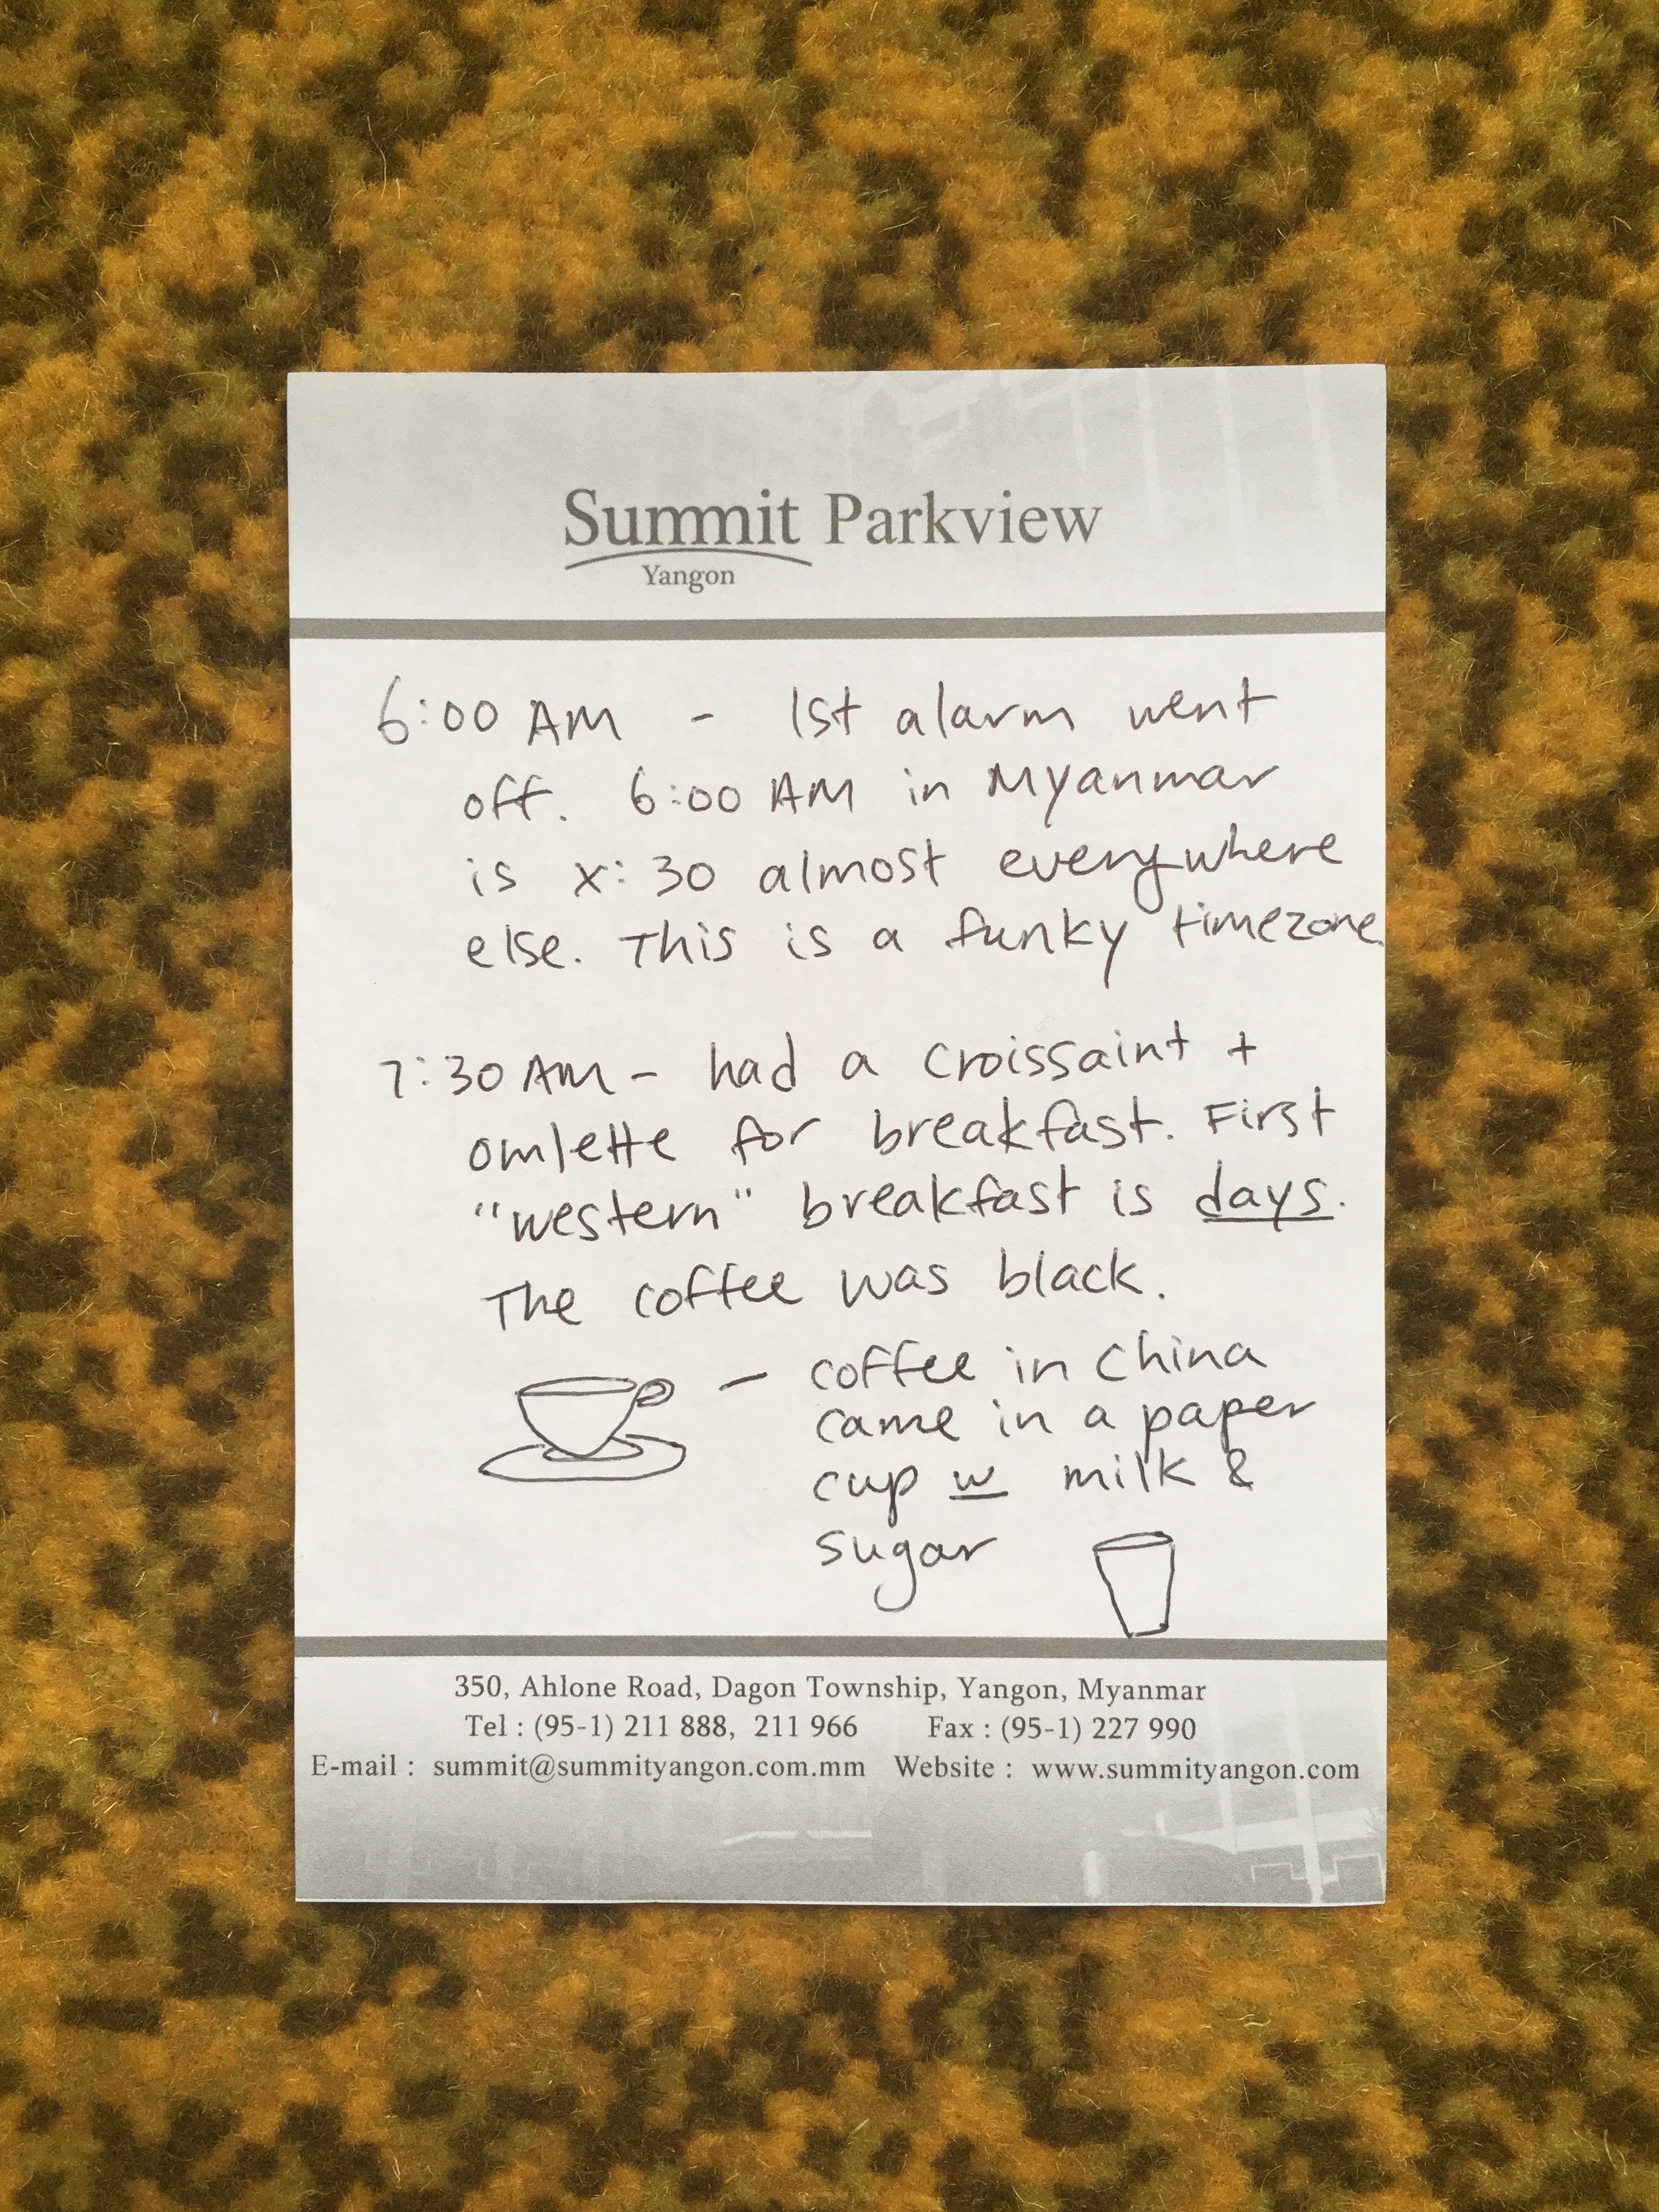 Summit Parkview
Yangon
6:00 AM - 1st alarm went
off. 6:00 AM in Myanmar
is x:30 almost everywhere
else. This is a funky timezone.
7:30 AM - had a croissaint +
omlette for breakfast. First
"western" breakfast is days.
The coffee was black.
- coffee in China
came in a paper
cup w milk &
sugar
350, Ahlone Road, Dagon Township, Yangon, Myanmar
Tel : (95-1) 211 888, 211 966 Fax : (95-1) 227 990
E-mail : summit@summityangon.com.mm Website : www.summityangon.com